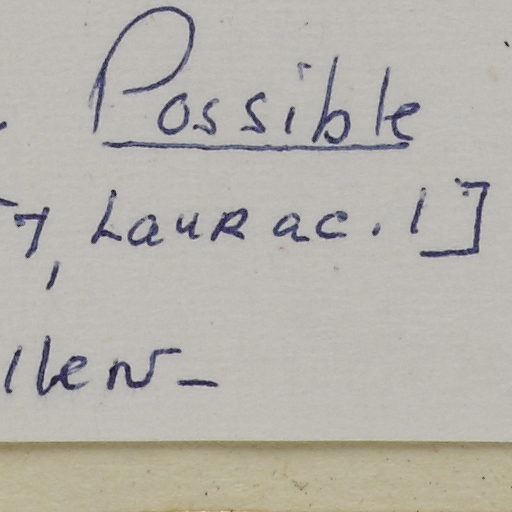 Possible
7, Laurac. 1]
llen-